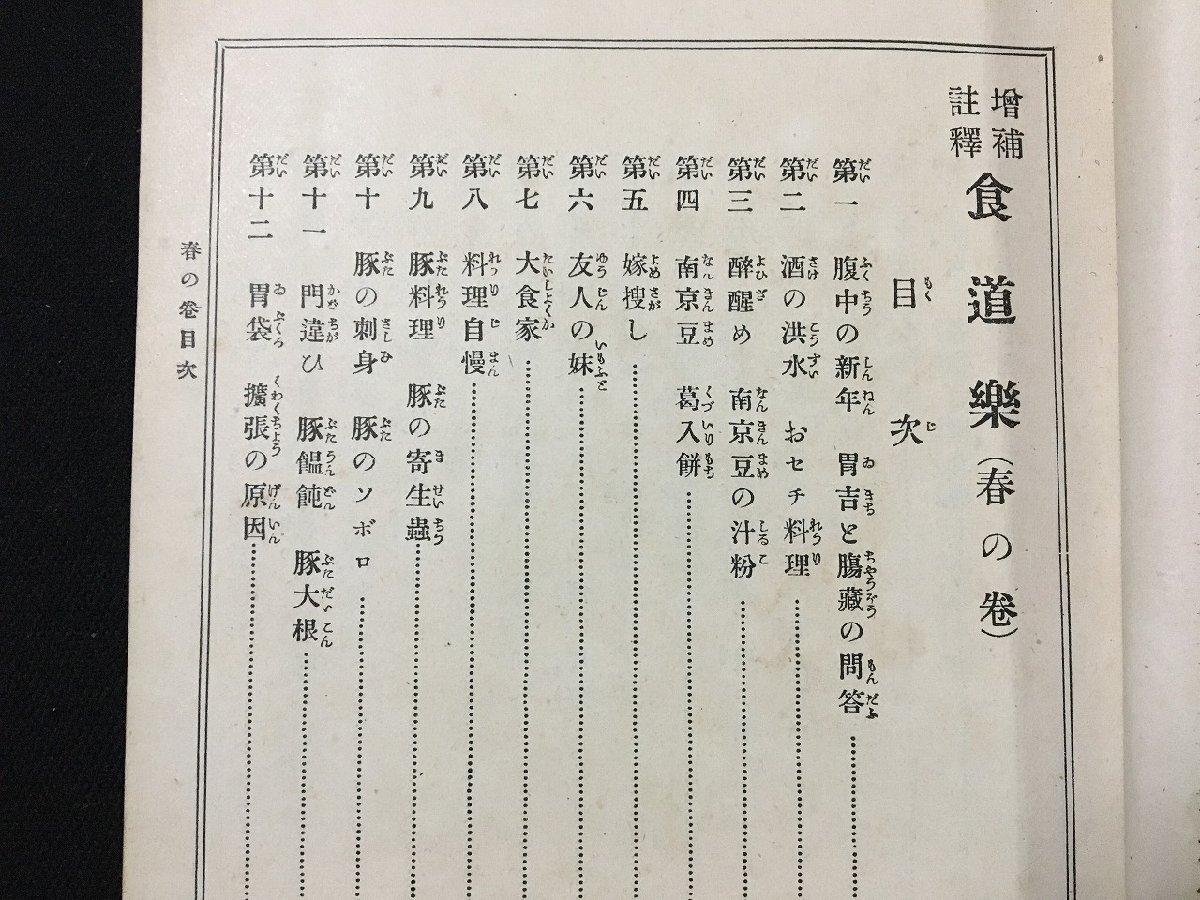 增補註釋 食道樂(春の卷)
目次
第一 腹中の新年 胃吉と膓藏の問答
第二 酒の洪水 おセチ料理
第三 醉醒め 南京豆の汁粉
第四 南京豆 葛入餅
第五 嫁搜し
第六 友人の妹
第七 大食家
第八 料理自慢
第九 豚料理 豚の寄生蟲
第十 豚の刺身 豚のソボロ
第十一 門違ひ 豚饂飩 豚大根
第十二 胃袋 擴張の原因
春の卷目次